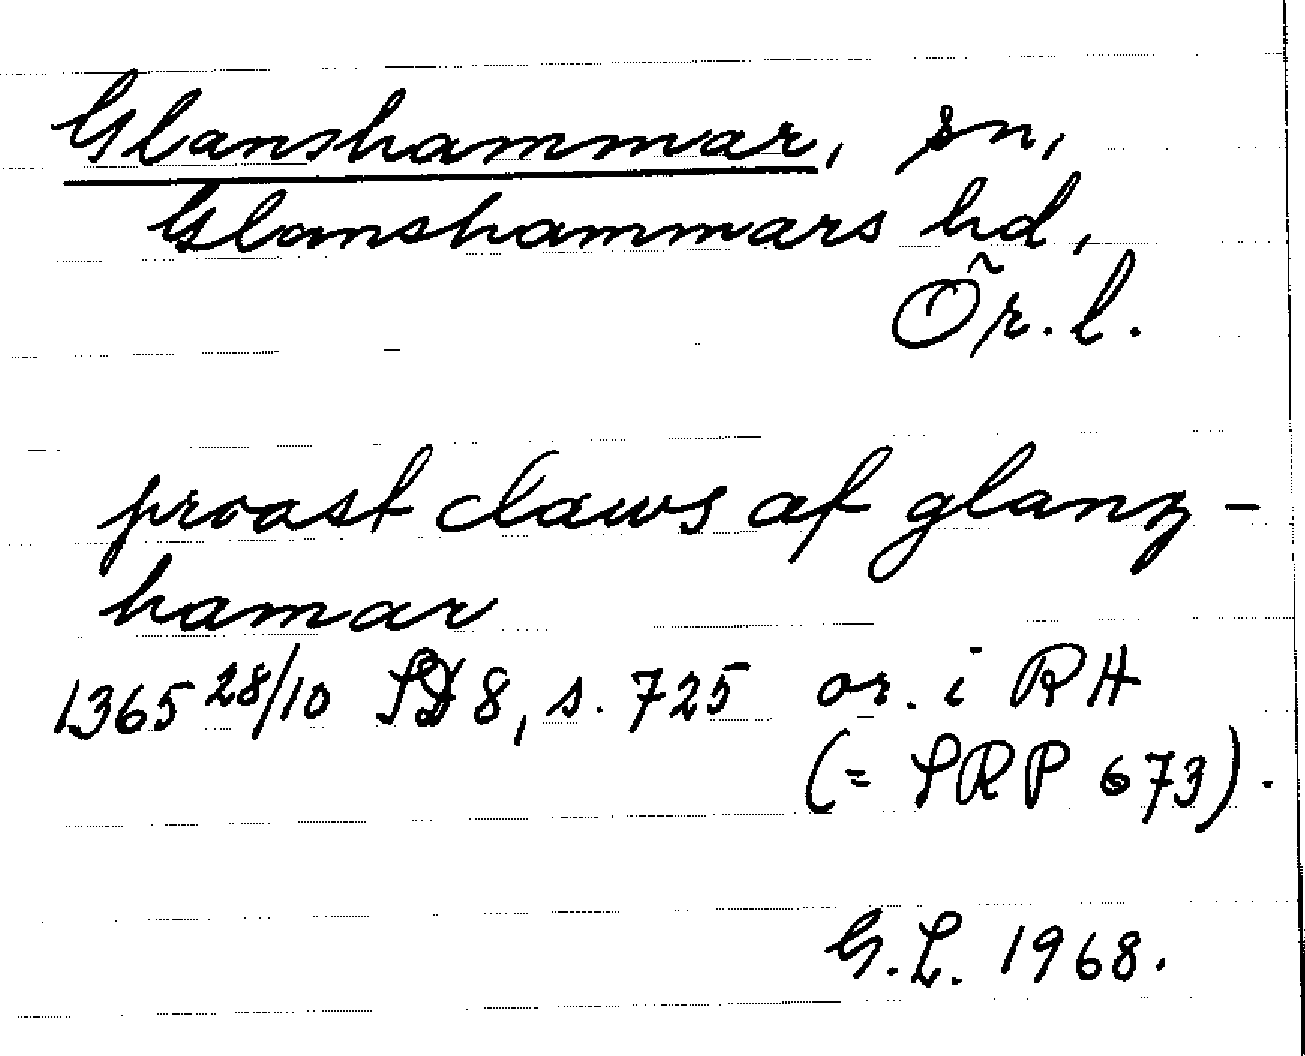 Glanshammar, sn,
Glanshammars hd,
Ör. l.
proast claws af glanz-
hamar
1365 28/10 SD 8, s. 725 or. i RA
(= SRP 673).
G. L. 1968.